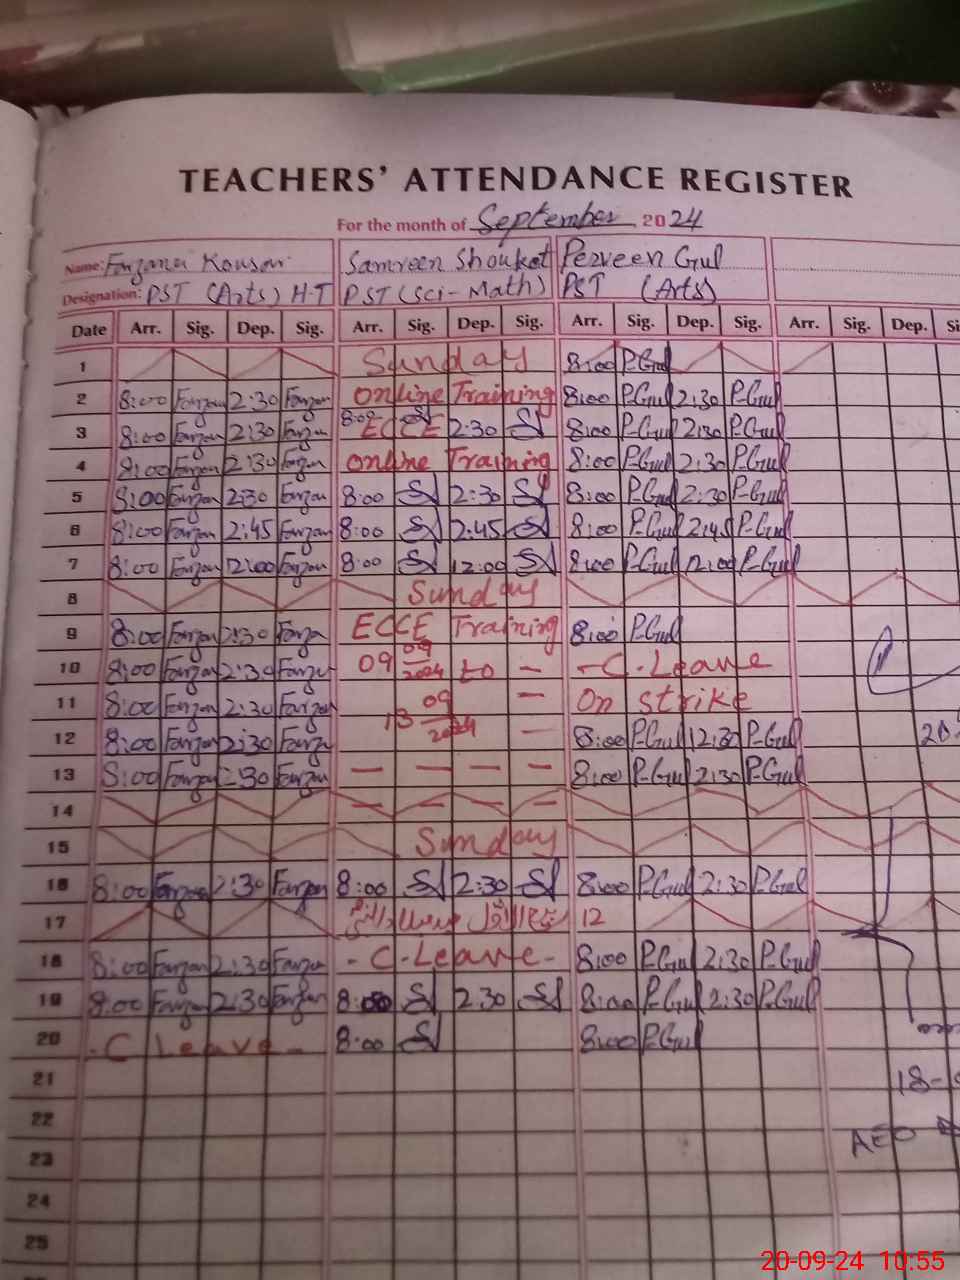 TEACHERS' ATTENDANCE REGISTER
For the month of September 2024
Name: Farzana Kousar Samreen Shoukat Perveen Gul
Designation: PST (Arts) H-T PST (Sci-Math) PST (Arts)
Date Arr. Sig. Dep. Sig. Arr. Sig. Dep. Sig. Arr. Sig. Dep. Sig. Arr. Sig. Dep.
1 Sunday 8:00 P-Gul
2 8:00 Farzan 2:30 Farzan Online Training 8:00 P-Gul 2:30 P-Gul
3 8:00 Farzan 2:30 Farzan 8:00 ECCE 2:30 8:00 P-Gul 2:30 P-Gul
4 8:00 Farzan 2:30 Farzan Online Training 8:00 P-Gul 2:30 P-Gul
5 8:00 Farzan 2:30 Farzan 8:00 2:30 8:00 P-Gul 2:30 P-Gul
6 8:00 Farzan 2:45 Farzan 8:00 2:45 8:00 P-Gul 2:45 P-Gul
7 8:00 Farzan 12:00 Farzan 8:00 12:00 8:00 P-Gul 12:00 P-Gul
8 Sunday
9 8:00 Farzan 2:30 Farza ECCE Training 8:00 P-Gul
10 8:00 Farzan 2:30 Farzan 09 09 2024 to - - C. Leave
11 8:00 Farzan 2:30 Farzan 13 09 2024 - On strike
12 8:00 Farzan 2:30 Farzan - 8:00 P-Gul 12:30 P-Gul
13 8:00 Farzan 2:30 Farzan - - - - 8:00 P-Gul 2:30 P-Gul
14 - - - -
15 Sunday
16 8:00 Farzan 2:30 Farzan 8:00 2:30 8:00 P-Gul 2:30 P-Gul
17 12
18 8:00 Farzan 2:30 Farzan - C-Leave - 8:00 P-Gul 2:30 P-Gul
19 8:00 Farzan 2:30 Farzan 8:00 2:30 8:00 P-Gul 2:30 P-Gul
20 - C Leave - 8:00 8:00 P-Gul
21
22
23 AEO
24
25
20-09-24 10:55